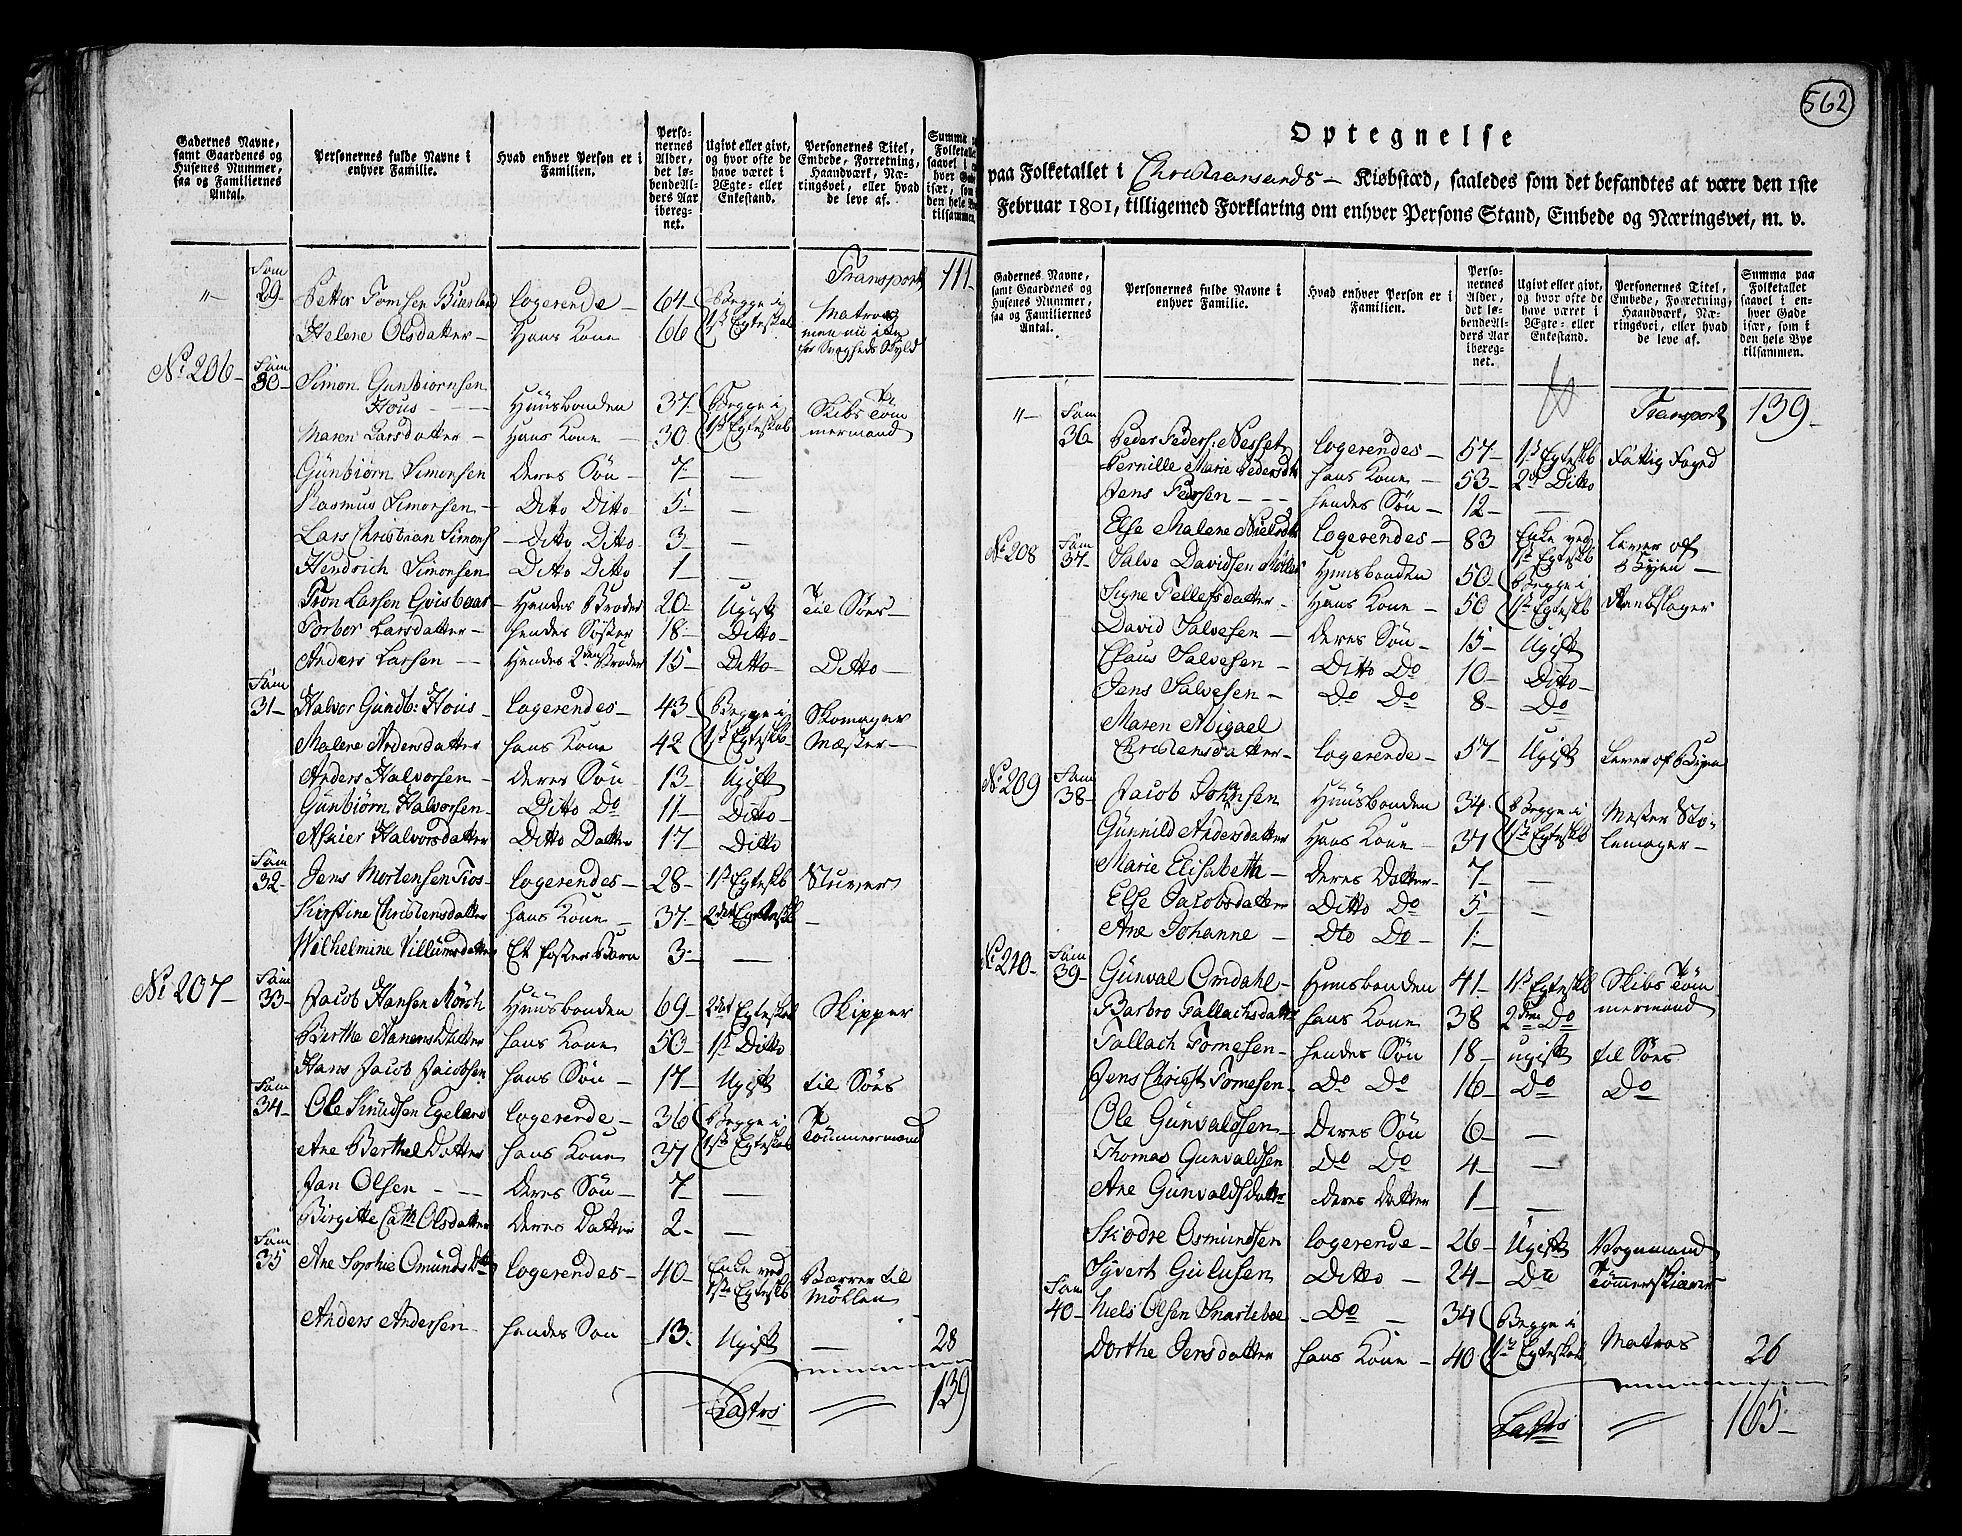 Gadernes Navne, samt Gaardenes og Husenes Nummer, saa og Familiernes Antal.
Personernes fulde Navne i enhver Familie.
Hvad enhver Person er i Familien.
Personernes Alder, det løbendeAlders Aar iberegnet.
Ugivt eller givt, og hvor ofte de have været i Ægte- eller Enkestand.
Personernes Titel, Embede, Forretning, Haandværk, Næringsvei, eller hvad de leve af.
Transport 111-
"- Fam 29- Petter Tomsen logerende - 64- Begge i 1ste Egteskab Matros
Helene Olsdatter- Hans Kone 66 men nu i
for Svagheds Skyld
No 206- Fam 30- Simon Gunbiornsen
Hous - - - Huusbonden 37- Begge i 1ste Egteskab Skibs Tøm
Maren Larsdatter - Hans Kone - 30 mermand
Gunbiørn Simonsen Deres Søn - 7- -
Rasmus Simonsen - Ditto Ditto 5- -
Lars Christian Simons - Ditto Ditto 3- -
Hendrich Simonsen Ditto Ditto 1- -
Tron Larsen - Hendes Broder 20- Ugift Til Søes -
Torbor Larsdatter - Hendes Søster 18- Ditto-
Anders Larsen - - Hendes 2den Broder 15- Ditto- Ditto-
Fam 31- Halvor Gundb: Hous - logerendes - 43- Begge i 1st Egteskb- Skomager
Malene Andersdatter hans Kone 42 Mester-
Anders Halvorsen - Deres Søn - 13- Ugift
Gunbiørn Halvorsen - Ditto Do 11- Ditto-
Halvorsdatter Ditto Datter 17- Ditto
Fam 32- Jens Mortensen Fios- logerendes - 28- 1st Egteskb Stuver
Kirstine Christensdatter hans Kone - 37- 2det Egteskb -
Wilhelmine Villumsdatter Et foster Barn 3- -
No 207- Fam 33- Jacob Hansen Mørch Huusbonden 69- 2det Egteskab Skipper
Berthe Aanens Datter hans Kone 50- 1st Ditto
Hans Jacob Jacobsen hans Søn - 17- Ugift til Søes
Fam 34- Ole Knudsen Egeland logerende- 36 Begge i 1ste Egteskab Tømmermand
Ane Berthel Datter hans Kone 37
Jan Olsen - - - Deres Søn - 7- -
Birgitte Cath Olsdatter Deres Datter 2- -
Fam 35 Ane Sophie Omunds Dtr logerendes - 40- Enke ved 1ste Egteskb Bærer til Møllen
Anders Andersen - hendes Søn 13- Ugift - 28
139
Latus
562
Optegnelse
paa Folketallet i Christiansands - Kiøbstæd, saaledes som det befandtes at være den 1ste
Februar 1801, tilligemed Forklaring om enhver Persons Stand, Embede og Næringsvei, m. v.
Gadernes Navne, samt Gaardenes og Husenes Nummer, saa og Familiernes Antal.
Personernes fulde Navne i enhver Familie.
Hvad enhver Person er i Familien.
Personernes Alder, det løbendeAlders Aar iberegnet.
Ugivt eller givt, og hvor ofte de have været i Ægte- eller Enkestand.
Personernes Titel, Embede, Forretning, Haandværk, Næringsvei, eller hvad de leve af.
Summa paa Folketallet saavel i enhver Gade især, som i den hele Bye tilsammen.
Transport 139-
"- Fam 36- Peder Peders: Nesset logerendes - 57- 1st Egteskb Fattig Foged
Pernille Marie Pedersdtr hans Kone - 53- 2d Ditto
Jens - - - hendes Søn - 12- -
Else Malene Nielsdtr logerendes - 83 Enke ved 1st Egteskb Lever af Byen -
No 208 Fam 37- Salve Davidsen Møller Huusbonden 50- Begge i 1ste Egteskb Reebslager
Signe Tellefsdatter - Hans Kone - 50
David Salvesen - Deres Søn - 15- Ugift
Claus Salvesen - Ditto Do 10- Ditto-
Jens Salvesen - Do Do 8- Do
Maren Abigael
Christensdatter- logerende - 57 Ugift Lever af Byen
No 209 Fam 38- Jacob Johnsen Huusbonden 34- Begge i 1ste Egteskb Mester Sto-
Gunnild Andersdatter Hans Kone - 37 lemager-
Marie Elisabeth - Deres Datter- 7- -
Else Jacobsdatter Ditto Do 5- -
Ane Johanne - Dto Do- 1-
No 210- Fam 39- Gunval Omdahl - Huusbonden 41- 1st Egteskb Skibs Tøm
Barbro Tallachsdatter hans Kone 38 2den Do mermand
Tallach Tomesen - hendes Søn 18- ugift til Søes
Jens Christ Tomesen- Do Do 16- Do Do
Ole Gunvaldsen- Deres Søn 6- -
Thomas Gunvaldsen Do Do 4- -
Ane Gunvalds Datter deres Datter 1- -
Osmundsen logerende - 26- Ugift Vognmand
Syvert Ditto - 24- Do Tømmerskiærer
Fam 40- Niels Olsen - Do - 34 Begge i 1ste Egteskab Matros
Dorthe Jensdatter hans Kone - 40 26
165-
Latus